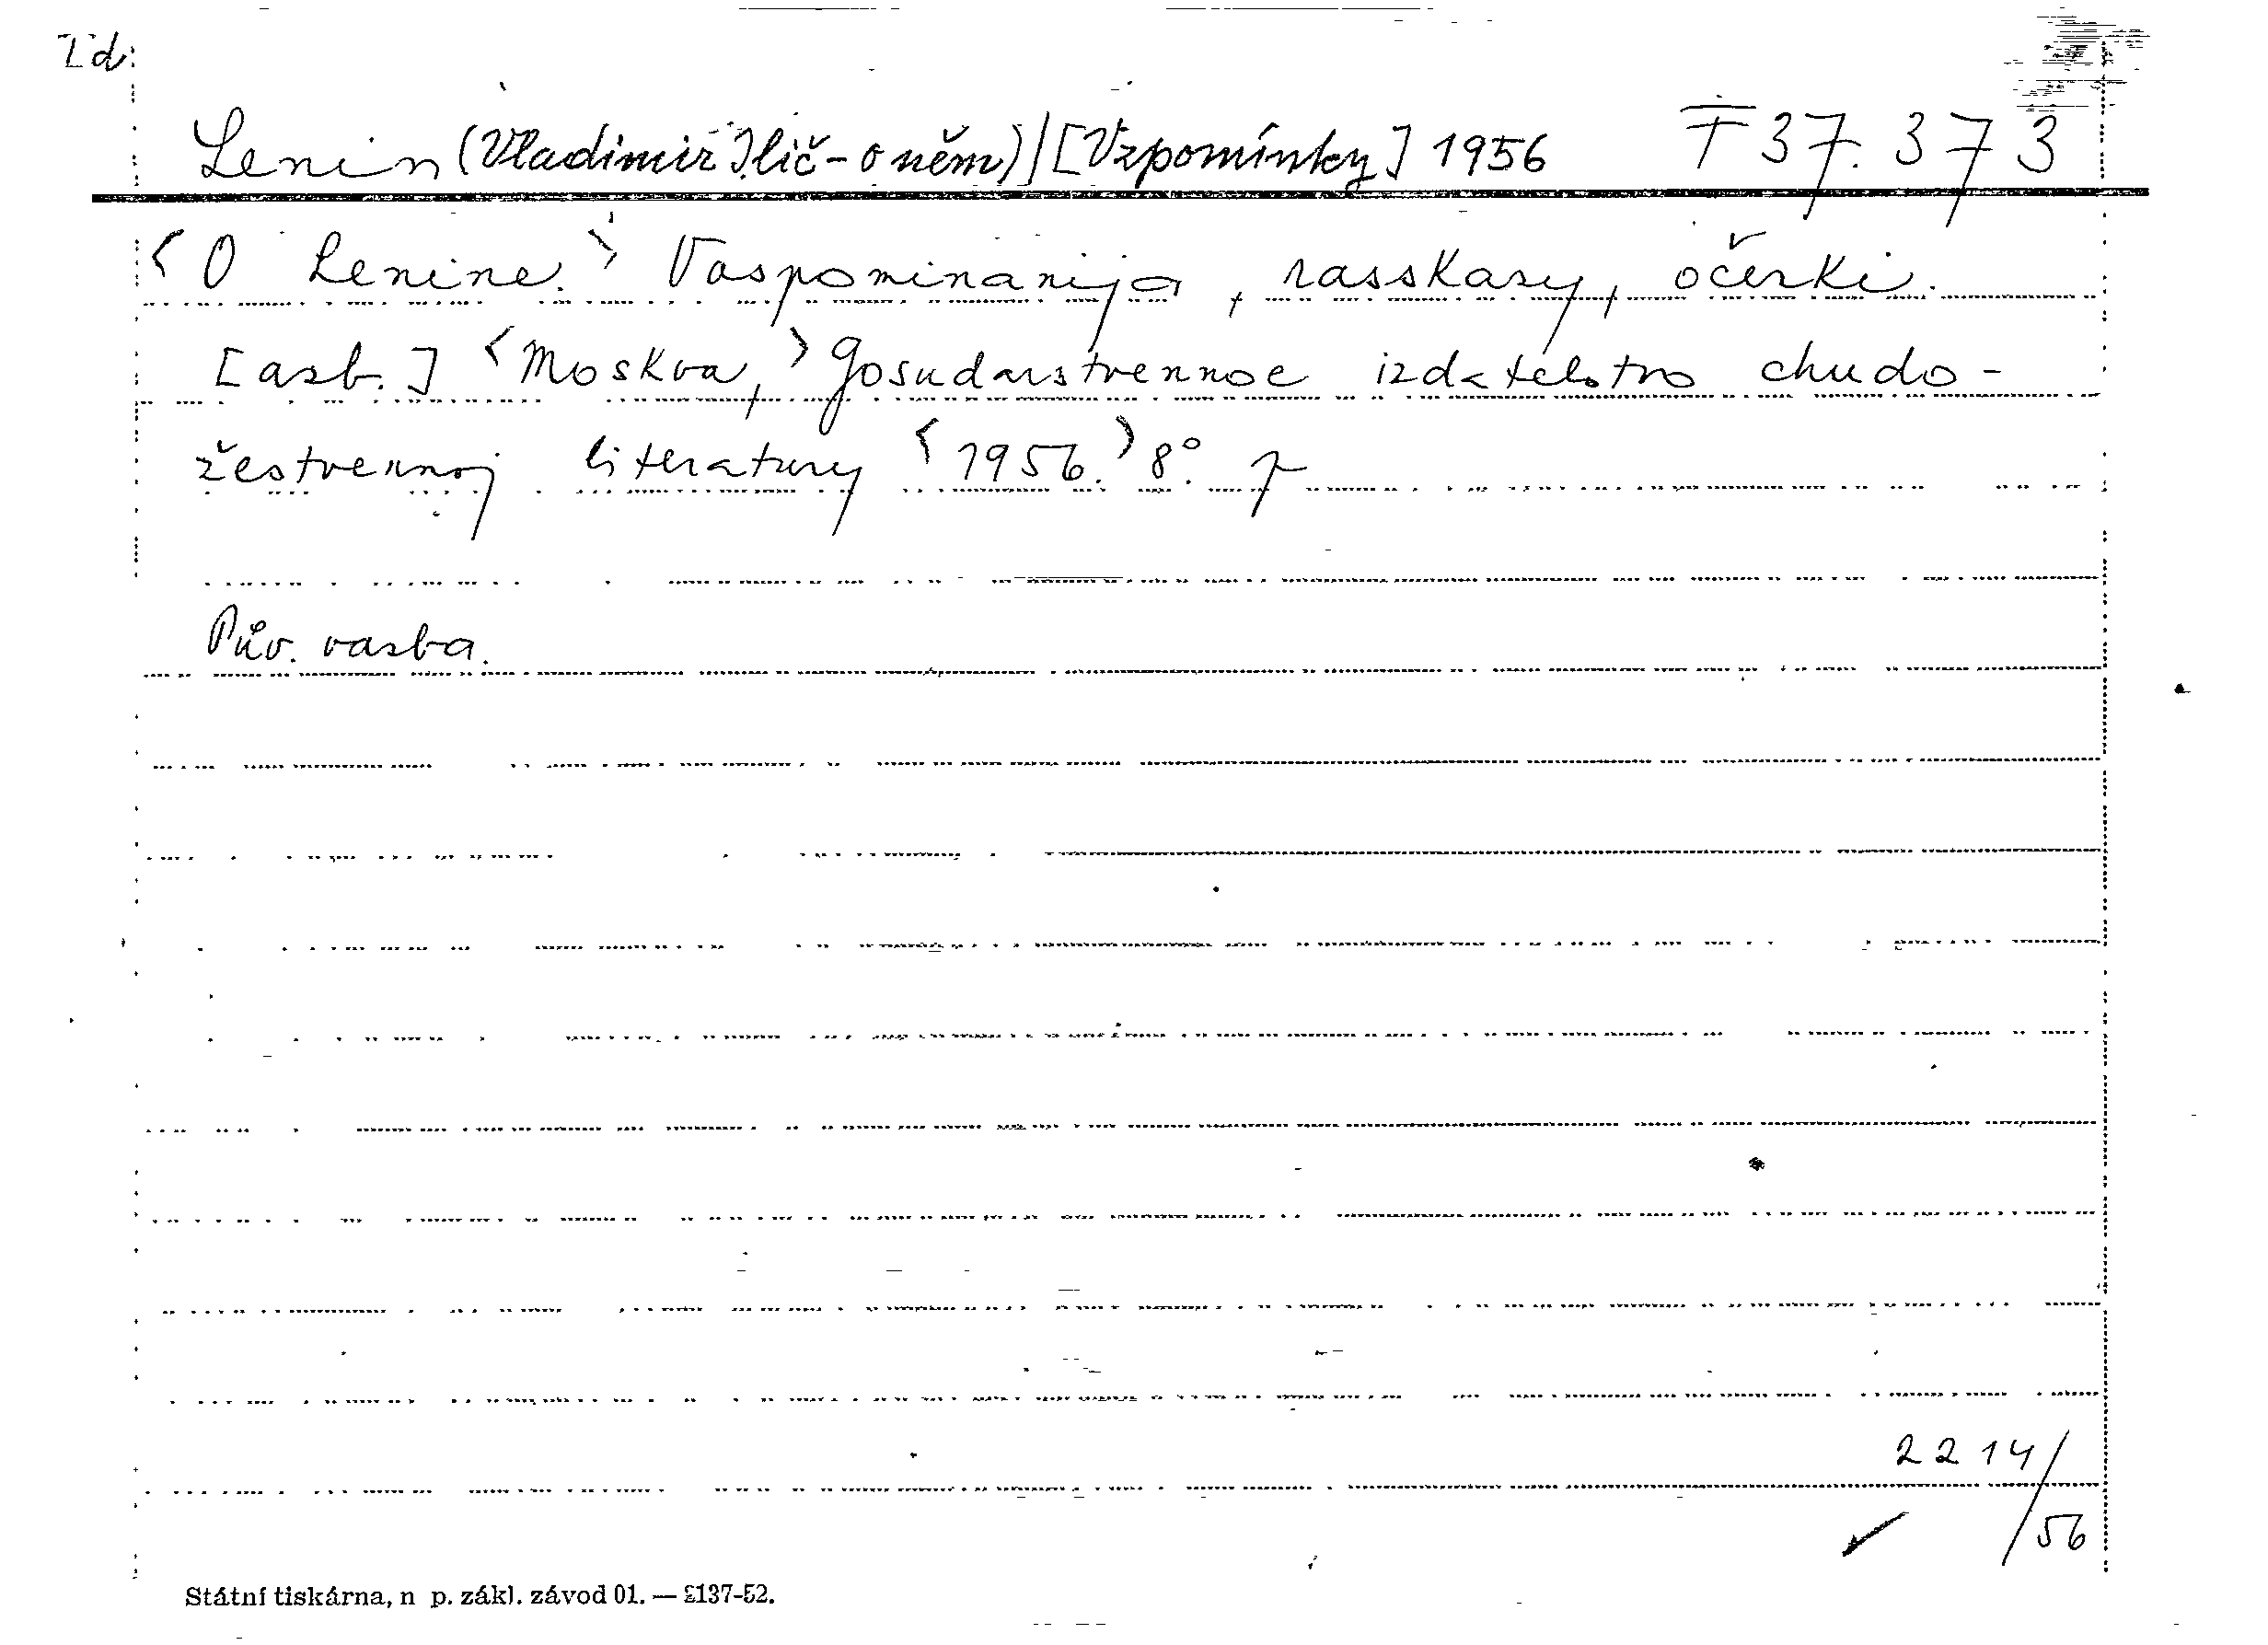 Zd:
Lenin (Vladimir Iljič - o něm) | [Vzpomínky] 1956 F 37.373
<O Lenine.> Vospominanija, rasskazy, očerki.
[azb.] <Moskva,> Gosudarstvennoe izdatelstvo chudo-
žestvennoj literatury <1956.> 8°.
Pův. vazba.
2214/
/56
Státní tiskárna, n p. zákl. závod 01. — 2137-52.